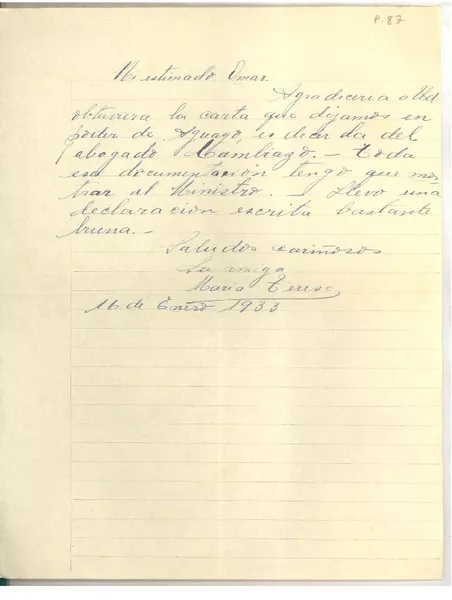 P-87
Mi estimado Omar.
Agradeceria a Ud
obtuviera la carta que dejamos en
poder de Aguayo, es decir la del
abogado Cambiazo. - Toda
esa documentación tengo que mos-
trar al Ministro. - Llevo una
declaración escrita bastante
buena. -
Saludos cariñosos
Su amiga
Maria Teresa
16 de Enero 1933